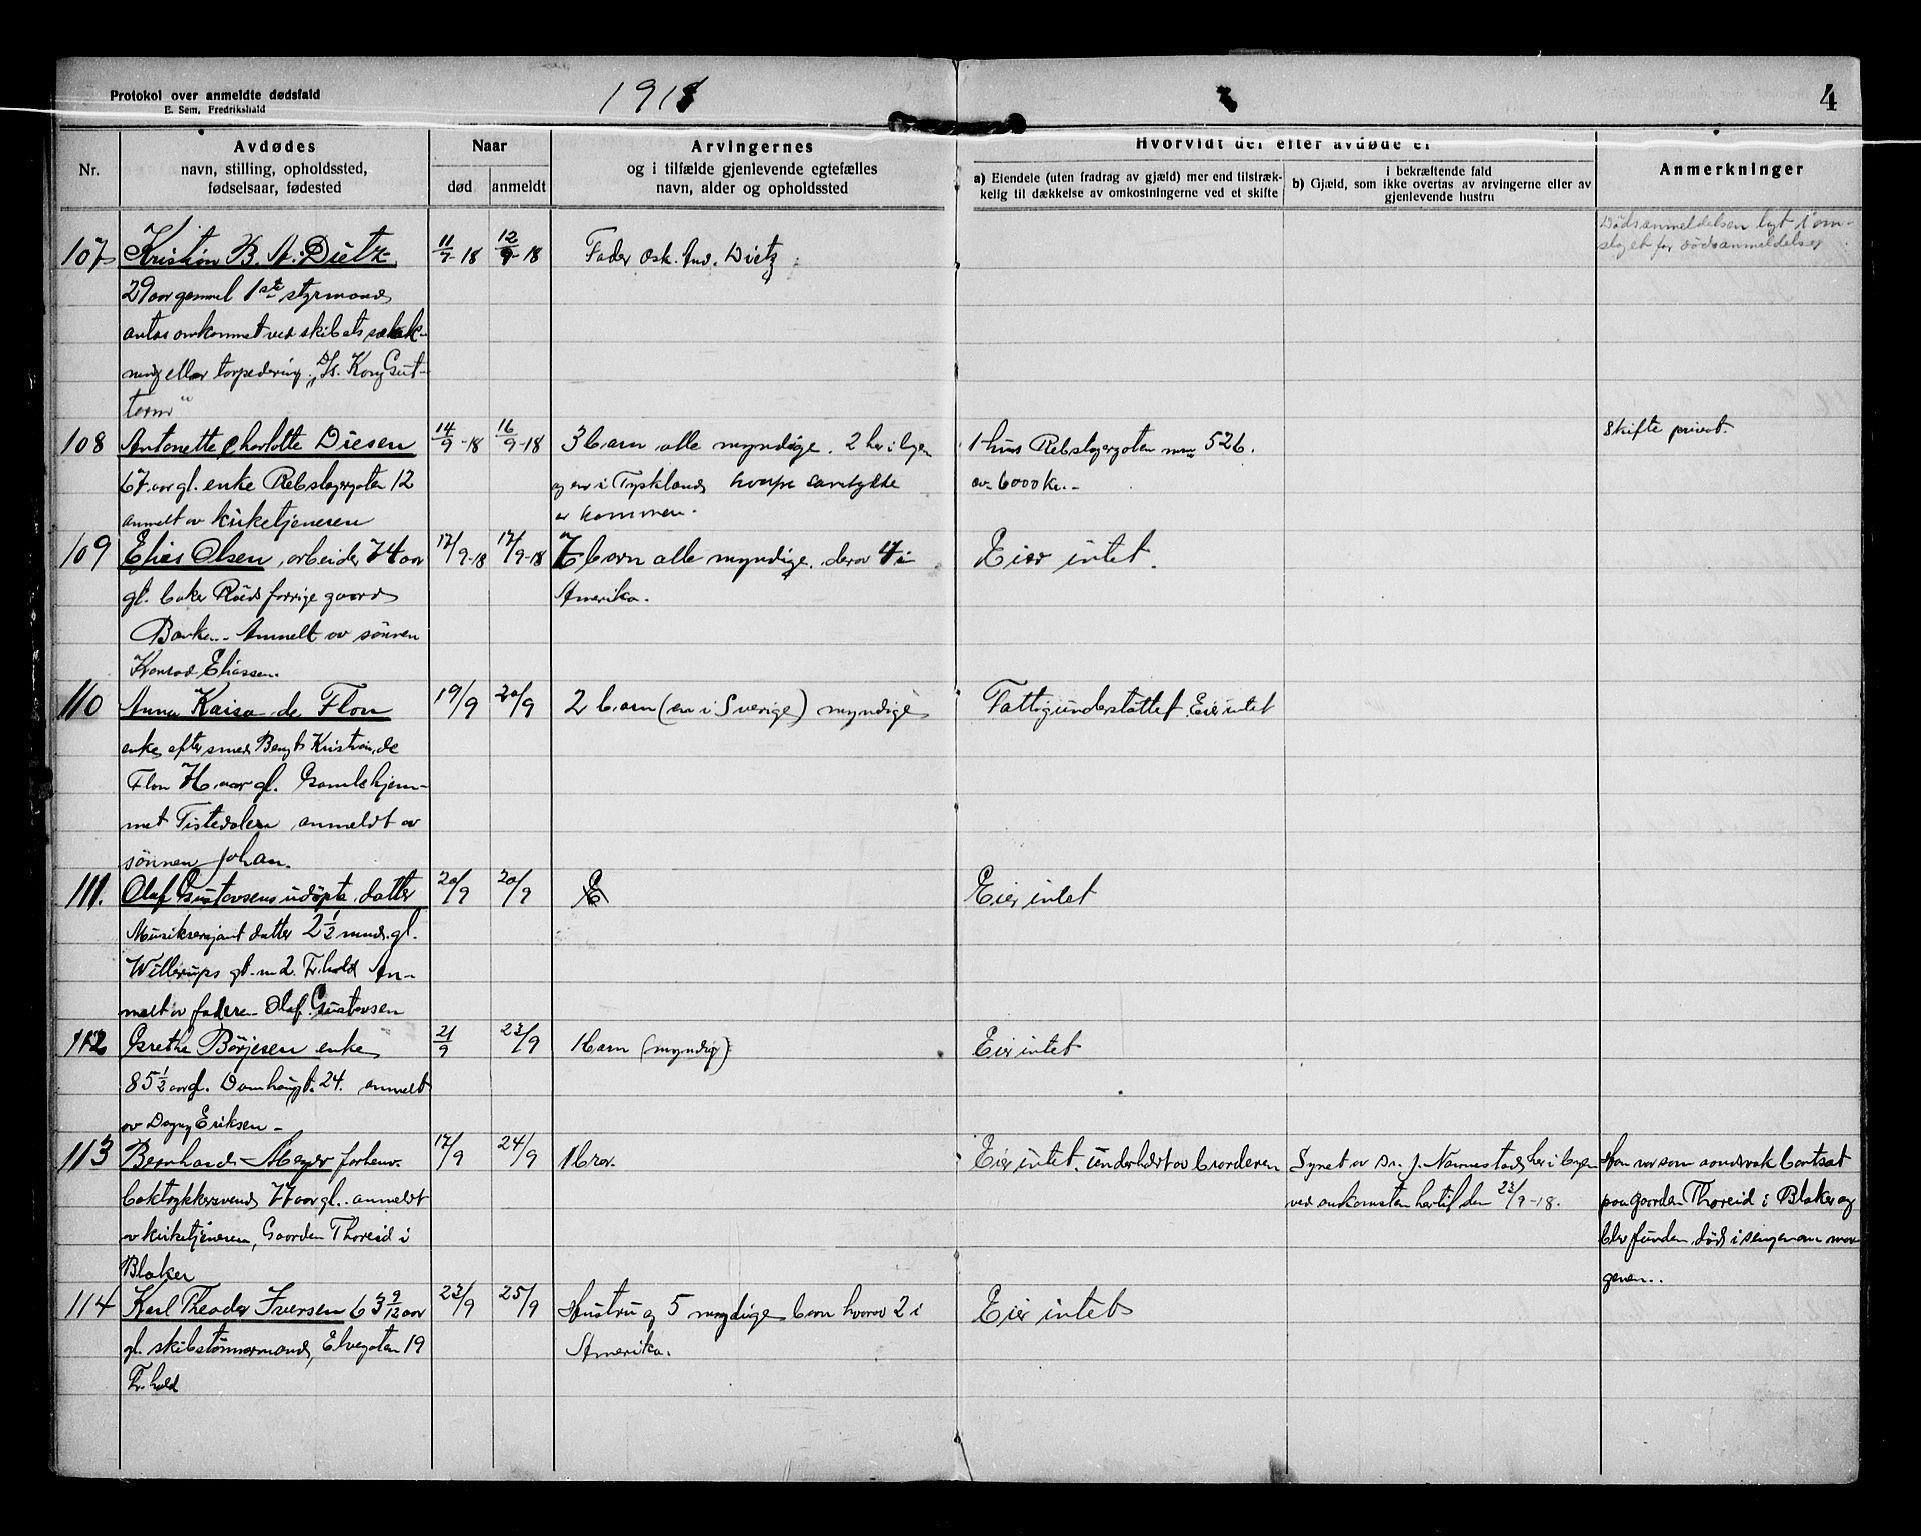 Protokol over anmeldte dødsfald
E. Sem, Fredrikshald
1918
4
Nr.
Avdødes
navn, stilling, opholdssted,
fødselsaar, fødested
Naar
død
anmeldt
Arvingernes
og i tilfælde gjenlevende egtefælles
navn, alder og opholdssted
Hvorvidt der efter avdøde er
a) Eiendele (uten fradrag av gjæld) mer end tilstræk-
kelig til dækkelse av omkostningerne ved et skifte
i bekræftende fald
b) Gjæld, som ikke overtas av arvingerne eller av
gjenlevende hustru
Anmerkninger
107 Kristian B. A. Dietz 11/9-18 12/9-18 Fader Osk. And. Dietz
Dødsanmeldelsen lagt i om-
slaget for dødsanmeldelser
29 aar gammel 1ste styrmand
antas omkommet ved skibets
ning eller torpedering. "D/s. Kong Gut-
torm"
108 Antonette Charlotte Diesen 14/9-18 16/9-18 3 barn alle myndige. 2 her i byen 1 hus Rebslagergaten 526. Skifte privat.
67 aar gl. enke Rebslagergaten 12 og en i Tyskland hvorpaa samtykke av 6000 kr.-
anmelt av kirketjeneren er kommen.
109 Elias Olsen, arbeider 74 aar 17/9-18 17/9-18 7 barn alle myndige, derav 4 i Eier intet.
gl. baker Røds forrige gaard Amerika.
Banken.. Anmelt av sønnen
Konrad Eliassen.
110 Anna Kaisa de Flon 19/9 20/9 2 barn (en i Sverige) myndige Fattigunderstøttet. Eier intet
enke efter smed Bengt Kristian de
Flon 74 aar gl. Gamlehjem-
met Tistedalen anmeldt av
sønnen Johan.
111. Olaf Gustavsens udøpte datter 20/9 20/9 E Eier intet
Musiksersjant datter 2 1/2 mnd. gl.
Willerups gt. 2. Fr.hald An-
melt av faderen Olaf Gustavsen
112 Grethe Børjesen enke 21/9 23/9 1 barn (myndig) Eier intet
85 1/2 aar gl. Damhaugt. 24. anmelt
av Dagny Eriksen -
113 Bernhard Meyer forhenv. 17/9 24/9 1 bror. Eier intet. underholdt av broderen Synet av Dr. J. Normestad her i byen Han var som aandsvak bortsat
boktrykkersvend 77 aar gl. anmeldt ved ankomsten hertil den 23/9-18. paa gaarden Thoreid i Blaker og
av kirketjeneren, Gaarden Thoreid i blev funden død i sengen om mor-
Blaker genen..
114 Karl Theodor Iversen 63 9/12 aar 23/9 25/9 Hustru og 5 myndige barn hvorav 2 i Eier intet
gl. skibstømmermand, Elvegaten 19 Amerika.
Fr.hald